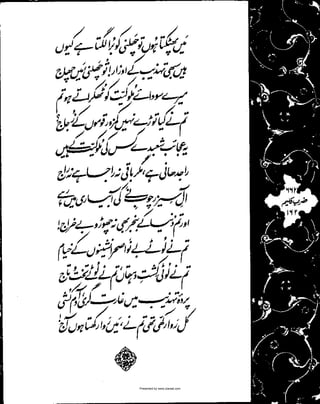 میں پھٹکتا ہوں تو چھلنی کو برا لگتا ہے کیوں
ہیں سبھی تہذیب کے اوزار! تو چھلنی، میں چھاج
میرے سودائے ملوکیت کو ٹھکراتے ہو تم
تم نے کیا توڑے نہیں کمزور قوموں کے زجاج؟
یہ عجائب شعبدے کس کی ملوکیت کے ہیں
راجدھانی ہے، مگر باقی نہ راجا ہے نہ راج
آلِ سیزر چوبِ نَے کی آبیاری میں رہے
اور تم دنیا کے بنجر بھی نہ چھوڑو بے خراج!
تم نے لوٹے بے نوا صحرا نشینوں کے خیام
تم نے لوٹی کشتِ دہقاں، تم نے لوٹے تخت و تاج
پردۂ تہذیب میں غارت گری، آدم کشی
کل روا رکھی تھی تم نے، میں روا رکھتا ہوں آج!
۶۶۲
ضربِ کلیم
۱۶۲
Presented by www.ziaraat.com